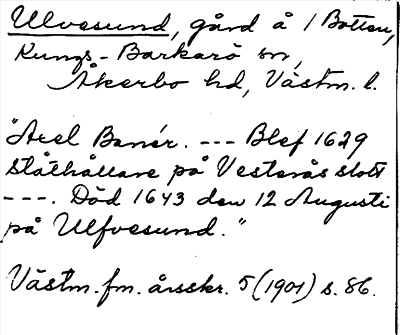 Ulvesund, gård å /Botten,
Kungs-Barkarö sn,
Åkerbo hd, Västm. l.
"Axel Banér. --- Blef 1629
ståthållare på Vesterås slott
---. Död 1643 den 12 Augusti
på Ulfvesund."
Västm. fm. årsskr. 5 (1901) s. 86.